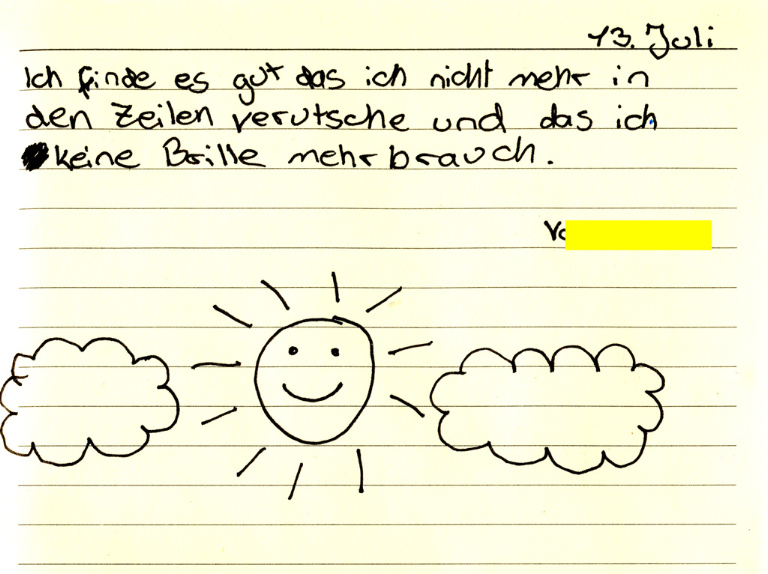 13. Juli
Ich finde es gut das ich nicht mehr in
den Zeilen verutsche und das ich
keine Brille mehr brauch.